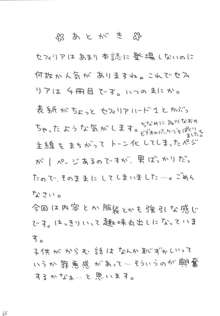 ☆ あとがき ☆
セフィリアはあまり本誌に登場しないのに
何故か人気がありますね。これでセフィ
リアは4冊目です。いつのまにか。
表紙がちょっとセフィリアハード1とかぶっ
ちゃったような気がします。
主線をまちがってトーン化してしまったページ
が1ページあるのですが、里ばっかりだっ
たので、そのままにしてしまいました…。ごめん
なさい。
今回は内容とか服装とかも強引な感じ
です。はっきりいって趣味丸出しになっていま
す。
子供がからむ話はなんかはずかしいって
いうか罪悪感があって…そういうのが興奮
するかなぁ…と思います。